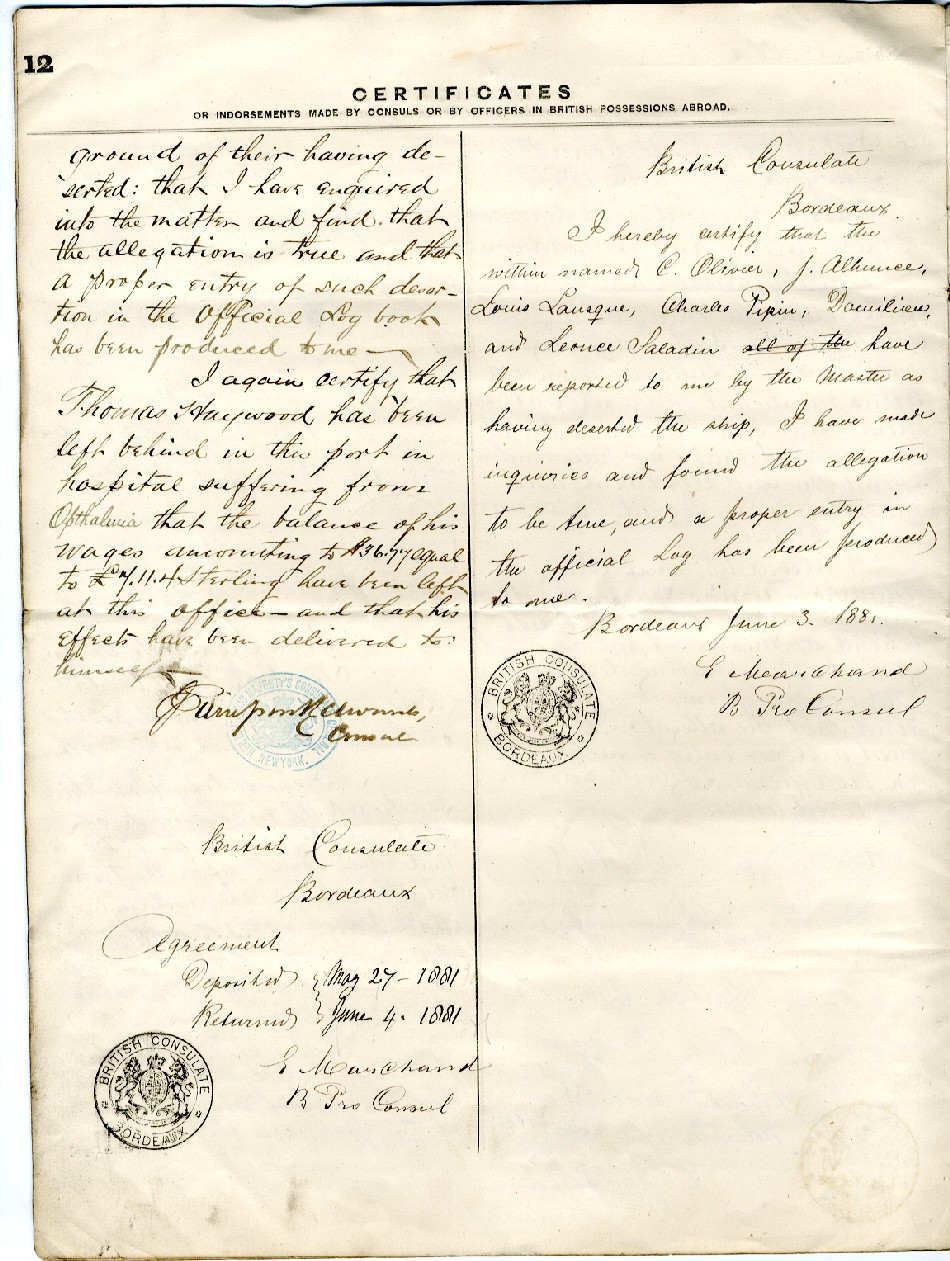 12
CERTIFICATES
OR INDORSEMENTS MADE BY CONSULS OR BY OFFICERS IN BRITISH POSSESSIONS ABROAD.
ground of their having de-
serted: that I have enquired
into the matter and find that
the allegation is true and that
a proper entry of such deser-
tion in the Official Log book
has been produced to me—
I again certify that
Thomas Haywood has been
left behind in this port in
hospital suffering from
Opthalmia that the balance of his
wages amounting to $36.77 equal
to £7.11.4 Sterling have been left
at this office – and that his
Effects have been delivered to
himself—
Consul
NEW YORK.
British Consulate
Bordeaux
Agreement
Deposited } May 27 - 1881
Returned } June 4. 1881
E Marchand
B Pro Consul
BRITISH CONSULATE
BORDEAUX
British Consulate
Bordeaux
I hereby certify that the
within named C. Olivier, J. Alliance,
Louis Lausque, Charles Pipin,
and Leonce Saladin all of the have
been reported to me by the Master as
having deserted the ship, I have made
inquiries and found the allegation
to be true, and a proper entry in
the official Log has been produced
to me.
Bordeaux June 3. 1881.
E Marchand
B Pro Consul
BRITISH CONSULATE
BORDEAUX